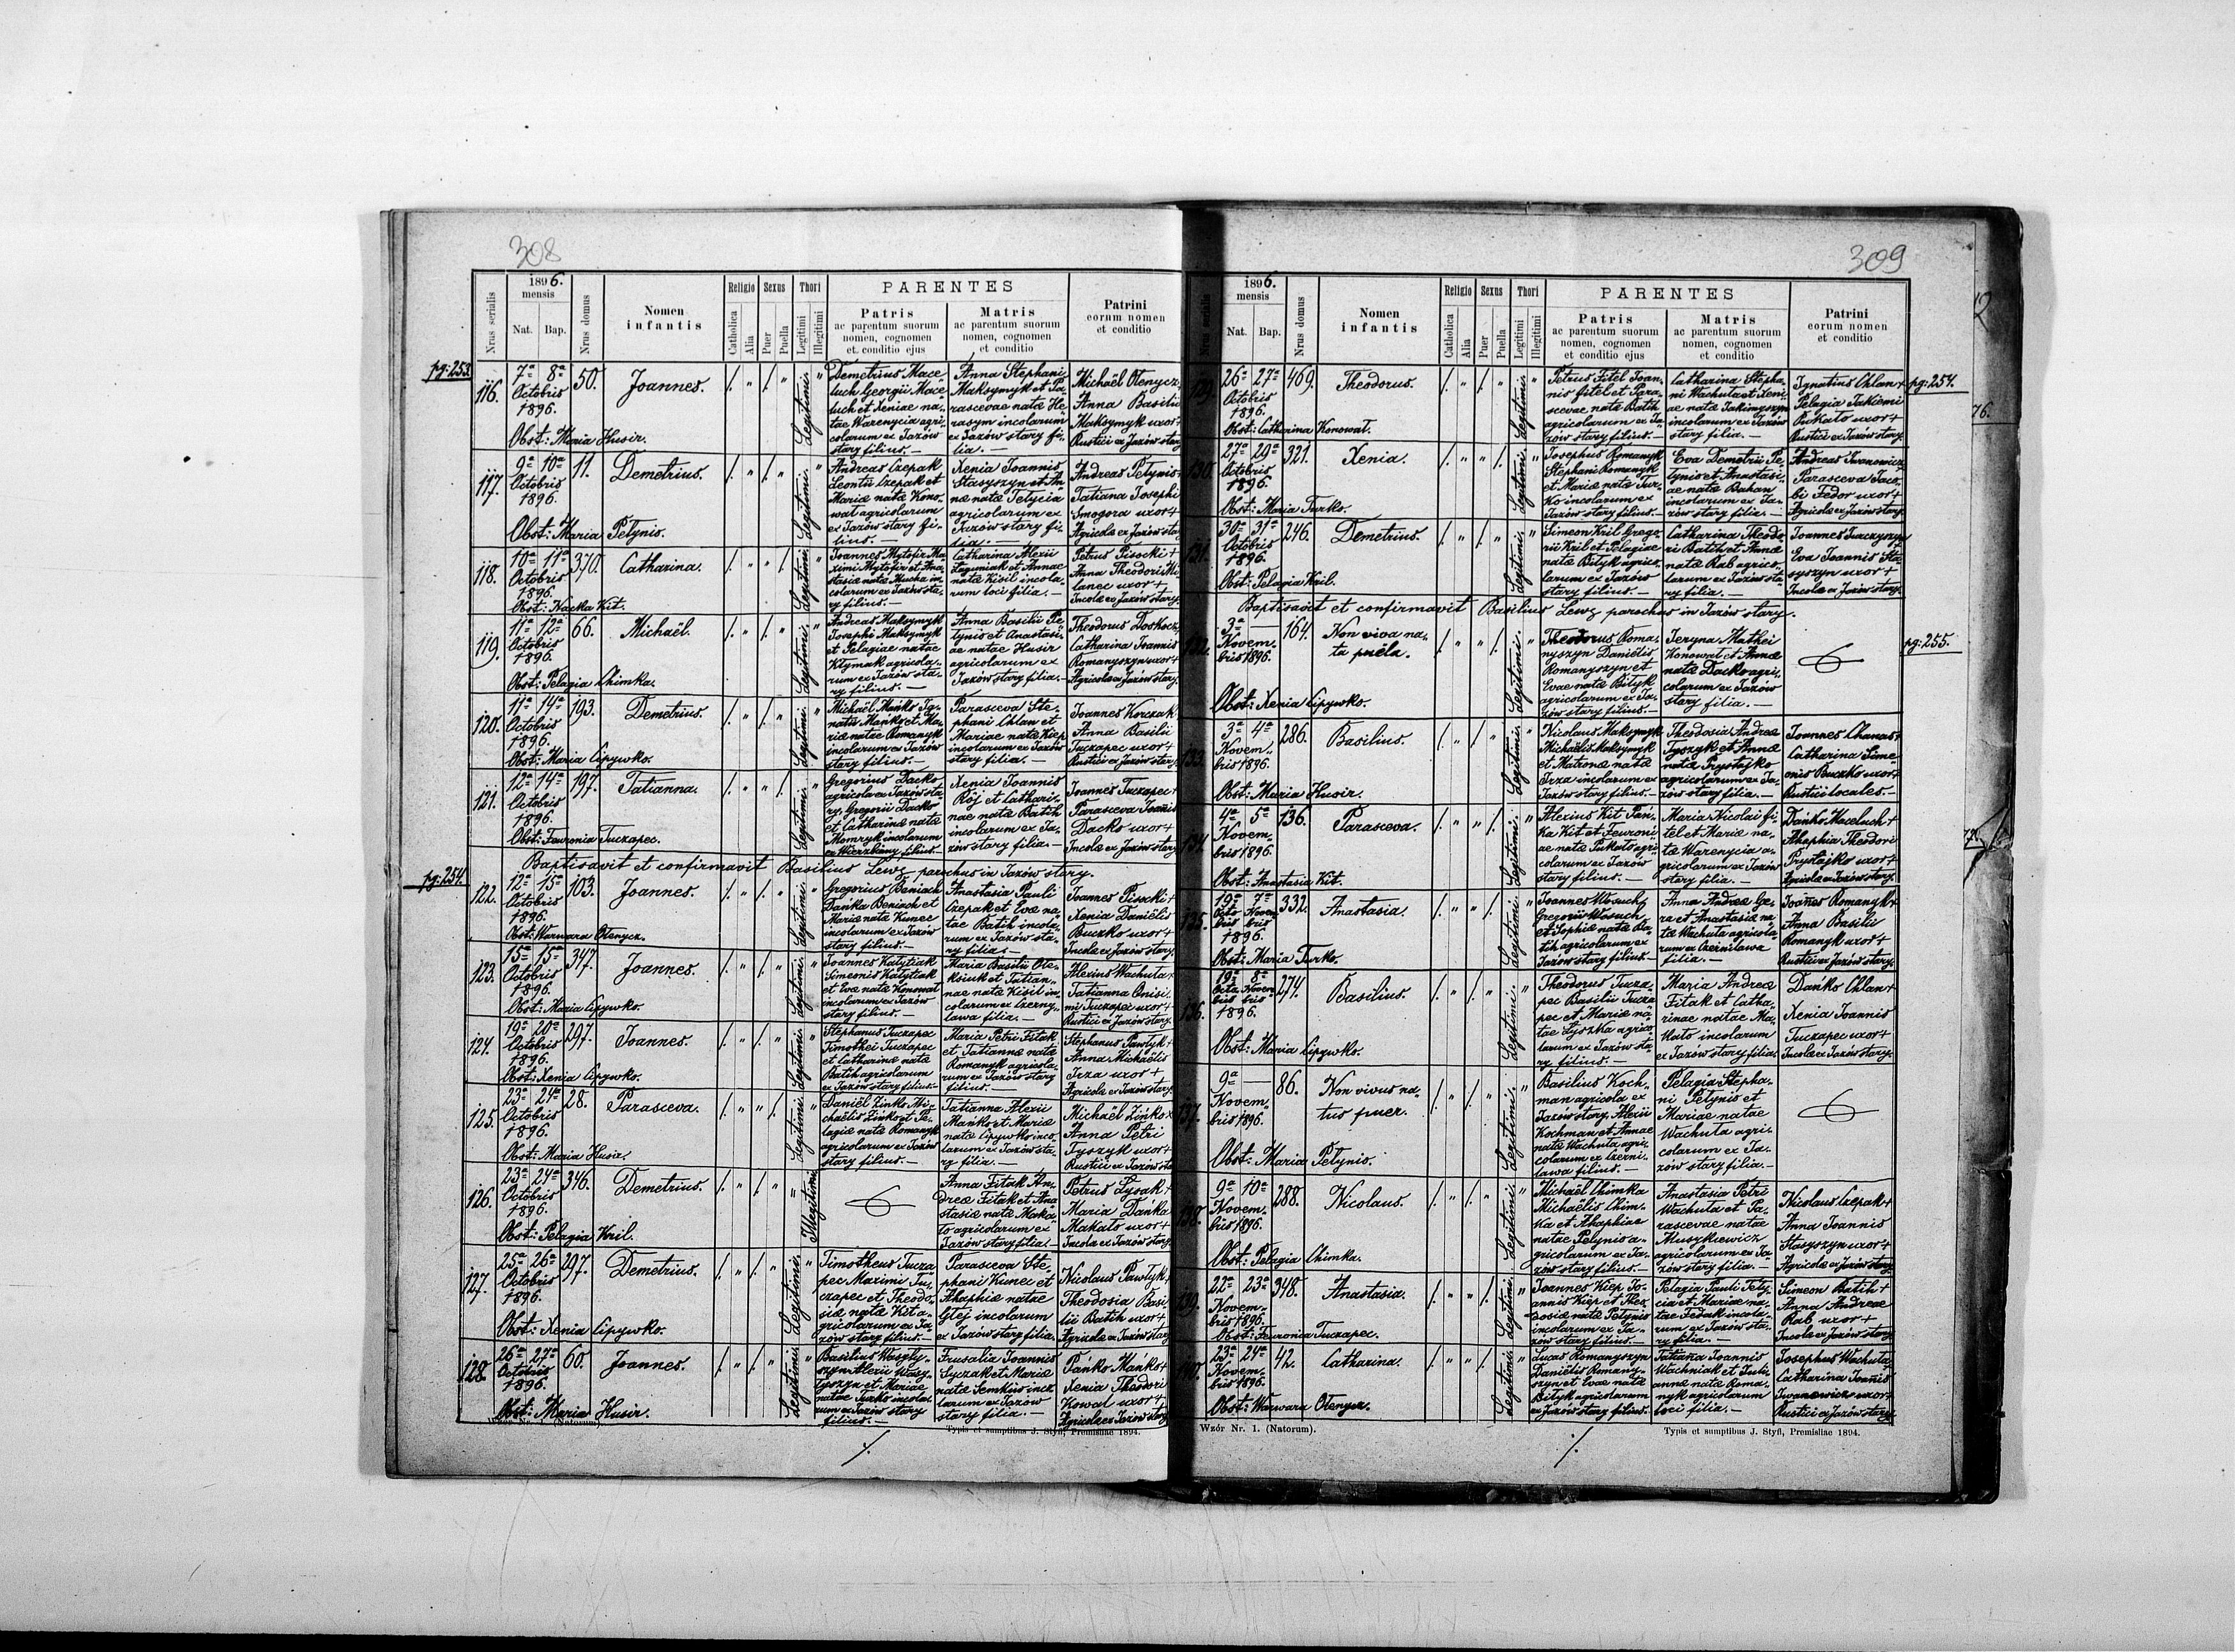 308
1896.
mensis
Nrus serialis
Nat.
Bap.
Nrus domus
Nomen
infantis
Religio
Sexus
Thori
Catholica
Alia
Puer
Puella
Legitimi
Illegitimi
PARENTES
Patris
ac parentum suorum
nomen, cognomen
et conditio ejus
Matris
ac parentum suorum
nomen, cognomen
et conditio
Patrini
eorum nomen
et conditio
pg: 253.
116.
7ª 8ª
Octobris
1896.
50.
Joannes.
Legitimi.
Demetrius Mace
luch Georgii Mace
luch et Xeniae na-
tae Warenycia agri-
colarum ex Jazów
stary filius.—
Anna Stephani
Maksymyk et Pa-
rascevae natae He-
rasym incolarum
ex Jazów stary fi-
lia.—
Michaël Olenycz
Anna Basilii
Maksymyk uxor +
Rustici ex Jazów stary
Obst: Maria Husir.
117.
9ª 10ª
Octobris
1896.
11.
Demetrius.
Legitimi.
Andreas Czepak
Leontii Czepak et
Mariae natae Kono-
wat agricolarum
ex Jazów stary fi-
lius.—
Xenia Joannis
Stasyszyn et An-
nae natae Tetycia
agricolarum ex
Jazów stary fi-
lia.—
Andreas Petynis
Tatiana Josephi
Smogora uxor +
Agricolae ex Jazów stary
Obst: Maria Petynis.
118.
10ª 11ª
Octobris
1896.
370.
Catharina.
Legitimi.
Joannes Mytofir Ma-
ximi Mytofir et Ana-
stasiae natae Mucha in-
colarum ex Jazów sta-
ry filius.—
Catharina Alexii
Laguniak et Annae
natae Kisil incola-
rum loci filia.—
Petrus Pisocki +
Anna Theodori Mi-
lanec uxor +
Incolae ex Jazów stary.
Obst: Nacka Kit.
119.
11ª 12ª
Octobris
1896.
66.
Michaël.
Legitimi.
Andreas Maksymyk
Josephi Maksymyk
et Pelagiae natae
Klymak agricola-
rum ex Jazów sta-
ry filius.—
Anna Basilii Pe-
tynis et Anastasi-
ae natae Husir
agricolarum ex
Jazów stary filia.—
Theodorus Doskocz
Catharina Joannis
Romanyszyn uxor +
Agricolae ex Jazów stary.
Obst: Pelagia Chimka.
120.
11ª 14ª
Octobris
1896.
193.
Demetrius.
Legitimi.
Michaël Mańko Ig-
natii Mańko et Ma-
riae natae Romanyk
incolarum ex Jazów
stary filius.—
Parasceva Ste-
phani Chlan et
Mariae natae Kiep
incolarum ex Jazów
stary filia.—
Joannes Korczak
Anna Basilii
Tuczapec uxor +
Rustici ex Jazów stary
Obst: Maria Lipywko.
121.
12ª 14ª
Octobris
1896.
197.
Tatianna.
Legitimi.
Gregorius Dacko
agricola ex Jazów sta-
ry, Gregorii Dacko
et Catharinae natae
Momryk incolarum
ex Wierzbiany filius.—
Xenia Joannis
Rój et Cathari-
nae natae Batih
incolarum ex Ja-
zów stary filia.—
Joannes Tuczapec +
Parasceva Joannis
Dacko uxor +
Incolae ex Jazów stary
Obst: Fevronia Tuczapec.
Baptisavit et confirmavit Basilius Lewz parochus in Jazów stary.
pg: 254.
122.
12ª 15ª
Octobris
1896.
103.
Joannes.
Legitimi.
Gregorius Beniach
Dańka Beniach et
Mariae natae Kunec
incolarum ex Jazów
stary filius.—
Anastasia Pauli
Czepak et Evae na-
tae Batih incola-
rum ex Jazów sta-
ry filia.—
Joannes Pisocki +
Xenia Daniëlis
Buczko uxor +
Incolae ex Jazów stary.
Obst: Warwara Olenycz.
123.
15ª 15ª
Octobris
1896.
347.
Joannes.
Legitimi.
Joannes Katytiak
Simeonis Katytiak
et Evae natae Konowat
incolarum ex Jazów
stary filius.—
Maria Basilii Ole-
ksiuk et Tatian-
nae natae Kisil in-
colarum ex Czerny-
lawa filia.—
Alexius Wachuta x
Tatianna Onisi-
mi Tuczapec uxor +
Rustici ex Jazów stary.
Obst: Maria Lipywko.
124.
19ª 20ª
Octobris
1896.
297.
Joannes.
Legitimi.
Stephanus Tuczapec
Timothei Tuczapec
et Catharinae natae
Batih agricolarum
ex Jazów stary filius.—
Maria Petri Fitak
et Tatiannae natae
Romanyk agricola-
rum ex Jazów stary
filius.
Stephanus Pawlyk +
Anna Michaëlis
Irza uxor +
Agricolae ex Jazów stary.
Obst: Xenia Lipywko.
125.
23ª 24ª
Octobris
1896.
28.
Parasceva.
Legitimi.
Daniël Zińko Mi-
chaëlis Zińko et Pe-
lagiae natae Romanyk
agricolarum ex Jazów
stary filius.—
Tatianna Alexii
Mańko et Mariae
natae Lipywko inco-
larum ex Jazów sta-
ry filia.—
Michaël Zińko x
Anna Petri
Tyszyk uxor +
Rustici ex Jazów sta
Obst: Maria Husir.
126.
23ª 24ª
Octobris
1896.
346.
Demetrius.
Illegitimi.
Anna Fitak An-
dreae Fitak et Ana-
stasiae natae Maka-
to agricolarum ex
Jazów stary filia.—
Petrus Lysak +
Maria Dańka
Makato uxor +
Incolae ex Jazów stary.
Obst: Pelagia Kril.
127.
25ª 26ª
Octobris
1896.
297.
Demetrius.
Legitimi.
Timotheus Tucza
pec Maximi Tu-
czapec et Theodo-
siae natae Kit a-
gricolarum ex Ja-
zów stary filius.—
Parasceva Ste-
phani Kunec et
Ahaphiae natae
Gtej incolarum
ex Jazów stary filia.
Nicolaus Pawlyk +
Theodosia Basi
lii Batih uxor +
Agricolae ex Jazów stary
Obst: Xenia Lipywko.
128.
26ª 27ª
Octobris
1896.
60.
Joannes.
Legitimi.
Basilius Wasyly-
szyn Alexii Wasy-
lyszyn et Mariae
natae Turko incola-
rum ex Jazów stary
filius.—
Frusalia Joannis
Syczak et Mariae
natae Semkius inco
larum ex Jazów
stary filia.—
Pańko Mańko +
Xenia Theodori
Kowal uxor +
Agricolae ex Jazów stary
Obst: Maria Husir.
Typis et sumptibus J. Styfi, Premisliae 1894.
309
1896.
mensis
Nrus serialis
Nat.
Bap.
Nrus domus
Nomen
infantis
Religio
Sexus
Thori
Catholica
Alia
Puer
Puella
Legitimi
Illegitimi
PARENTES
Patris
ac parentum suorum
nomen, cognomen
et conditio ejus
Matris
ac parentum suorum
nomen, cognomen
et conditio
Patrini
eorum nomen
et conditio
129.
26ª 27ª
Octobris
1896.
469.
Theodorus.
Legitimi.
Petrus Fitel Joan-
nis Fitel et Para-
scevae natae Batih
agricolarum ex Ja-
zów stary filius.—
Catharina Stepha-
ni Wachuta et Xeni-
ae natae Jakimyszyn
incolarum ex Jazów
stary filia.—
Ignatius Chlan +
Pelagia Jakiemi
Pukato uxor +
Rustici ex Jazów stary.
pg: 254.
76.
Obst: Catharina Konowat.
130.
27ª 29ª
Octobris
1896.
321.
Xenia.
Legitimi.
Josephus Romanyk
Stephani Romanyk
et Mariae natae Tur-
ko incolarum ex
Jazów stary filius.—
Eva Demetrii Pe-
tynis et Anastasi-
ae natae Bahan
incolarum ex Ja-
zów stary filia.—
Andreas Iwanowicz
Parasceva Jaco-
bi Fedor uxor +
Agricolae ex Jazów stary.
Obst: Maria Turko.
131.
30ª 31ª
Octobris
1896.
246.
Demetrius.
Legitimi.
Simeon Kril Grego-
rii Kril et Pelagiae
natae Bityk agrico-
larum ex Jazów
stary filius.—
Catharina Theodo-
ri Batih et Annae
natae Rab agrico-
larum ex Jazów sta-
ry filia.—
Joannes Turczyszyn
Eva Joannis Sta-
syszyn uxor +
Incolae ex Jazów stary.
Obst: Pelagia Kril.
Baptisavit et confirmavit Basilius Lewz parochus in Jazów stary.
132.
3ª —
Novem-
bris 1896.
164.
Non viva na-
ta puëla.
Legitimi.
Theodorus Roma-
nyszyn Daniëlis
Romanyszyn et
Evae natae Bityk
agricolarum ex Ja-
zów stary filius.—
Jeryna Mathei
Konowat et Annae
natae Dacko agri-
colarum ex Jazów
stary filia.—
pg: 255.
Obst: Xenia Lipywko.
133.
3ª 4ª
Novem-
bris 1896.
286.
Basilius.
Legitimi.
Nicolaus Maksymyk
Michaëlis Maksymyk
et Matronae natae
Irza incolarum ex
Jazów stary filius.—
Theodosia Andreae
Tyszyk et Annae
natae Prystajko
agricolarum ex Ja-
zów stary filia.—
Joannes Chanas +
Catharina Sime-
onis Buczko uxor +
Rustici locales—
Obst: Maria Husir.
134.
4ª 5ª
Novem-
bris 1896.
136.
Parasceva.
Legitimi.
Alexius Kit Pań-
ka Kit et Fevroni-
ae natae Pukato agri-
colarum ex Jazów
stary filius.—
Maria Nicolai Fi-
tel et Mariae na-
tae Warenycia a-
gricolarum ex Jazów
stary filia.—
Dańko Maceluch +
Ahaphia Theodori
Prystajko uxor +
Agricolae ex Jazów stary.
Obst: Anastasia Kit.
135.
19ª 7ª
Octo- Novem-
bris bris
1896.
332.
Anastasia.
Legitimi.
Joannes Wosuch
Gregorii Wosuch
et Sophiae natae Ba-
tih agricolarum ex
Jazów stary filius.—
Anna Andreae Ge-
ra et Anastasiae na
tae Wachuta agricola-
rum ex Czernilawa
filia.—
Joannes Romanyk +
Anna Basilii
Romanyk uxor +
Rustici ex Jazów stary.
Obst: Maria Turko.
136.
19ª 8ª
Octo- Novem-
bris bris
1896.
274.
Basilius.
Legitimi.
Theodorus Tucza-
pec Basilii Tucza
pec et Mariae na-
tae Lyszka agrico-
larum ex Jazów sta-
ry filius.—
Maria Andreae
Fitak et Catha-
rinae natae Ma-
kato incolarum
ex Jazów stary filia.
Dańko Chlan +
Xenia Joannis
Tuczapec uxor +
Incolae ex Jazów stary.
Obst: Maria Lipywko.
137.
9ª —
Novem-
bris 1896.
86.
Non vivus na-
tus puer.
Legitimi.
Basilius Koch-
man agricola ex
Jazów stary, Alexii
Kochman et Annae
natae Wachuta agri-
colarum ex Czerni-
lawa filius.—
Pelagia Stepha-
ni Petynis et
Mariae natae
Wachuta agri-
colarum ex Ja-
zów stary filia.—
Obst: Maria Petynis.
138.
9ª 10ª
Novem-
bris 1896.
288.
Nicolaus.
Legitimi.
Michaël Chimka
Michaëlis Chim-
ka et Ahaphiae
natae Petynis a-
gricolarum ex Ja-
zów stary filius.—
Anastasia Petri
Wachuta et Pa-
rascevae natae
Musykiewicz
agricolarum ex Ja-
zów stary filia.—
Nicolaus Czepak +
Anna Joannis
Stasyszyn uxor +
Agricolae ex Jazów stary.
Obst: Pelagia Chimka.
139.
22ª 23ª
Novem-
bris 1896.
348.
Anastasia.
Legitimi.
Joannes Kiep Jo-
annis Kiep et Theo
dosiae natae Petynis
incolarum ex Ja-
zów stary filius.—
Pelagia Pauli Tety-
cia et Mariae na-
tae Fedak incola-
rum ex Jazów sta-
ry filia.—
Simeon Batih +
Anna Andreae
Rab uxor +
Incolae ex Jazów stary.
Obst: Fevronia Tuczapec.
140.
23ª 24ª
Novem-
bris 1896.
42.
Catharina.
Legitimi.
Lucas Romanyszyn
Daniëlis Romany-
szyn et Evae natae
Bityk agricolarum
ex Jazów stary filius.
Tatiana Joannis
Wachniak et Juli-
annae natae Roma-
nyk agricolarum
loci filia.—
Josephus Wachuta
Catharina Joannis
Iwanowicz uxor +
Rustici ex Jazów stary.
Obst: Warwara Olenycz.
Wzór Nr. 1. (Natorum).
Typis et sumptibus J. Styfi, Premisliae 1894.